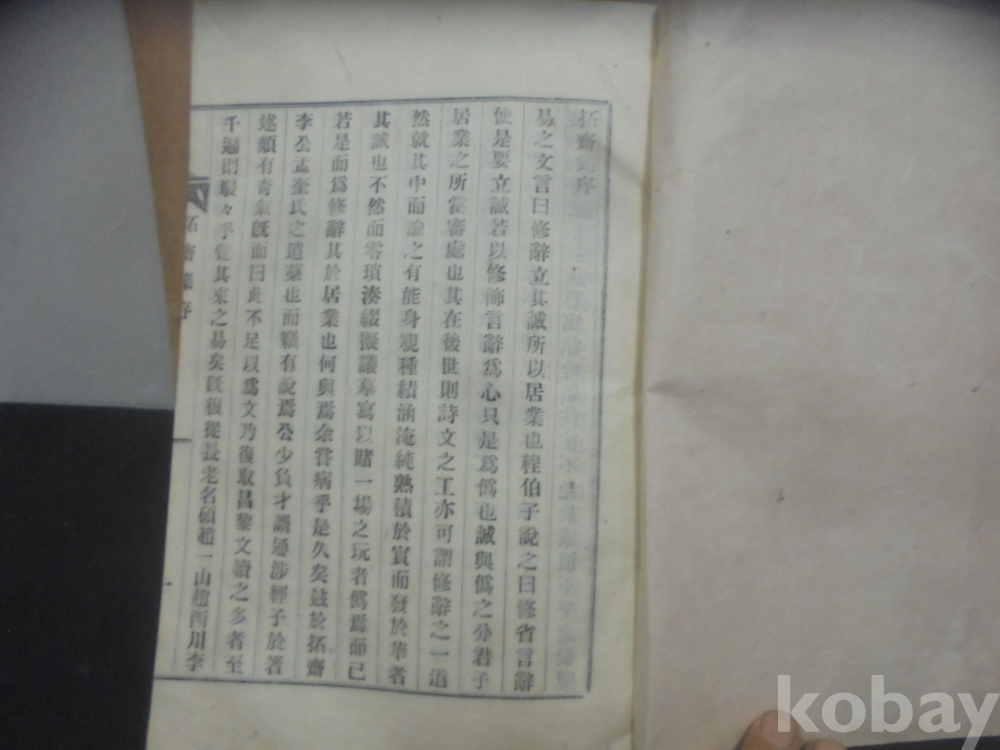 拓齋集序
易之文言曰修辭立其誠所以居業也程伯子說之曰修省言辭
便是要立誠若以修飾言辭爲心只是爲僞也誠與僞之分君子
居業之所當審處也其在後世則詩文之工亦可謂修辭之一道
然就其中而論之有能身親種績涵淹純熟積於實而發於華者
其誠也不然而零瑣湊綴擬議摹寫以賭一場之玩者僞焉而已
若是而爲修辭其於居業也何與焉余甞病乎是久矣玆於拓齋
李公孟奎氏之遺藁也而竊有說焉公少負才諝通涉經子於著
述頗有奇氣旣而曰此不足以爲文乃復取昌黎文讀之多者至
千遍則駸々乎覺其來之易矣旣復從長老名碩趙一山趙西川李
拓齋集序
一
kobay